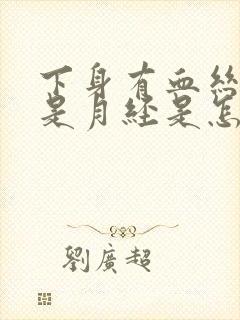 下身有血絲
是月經是怎
劉廣超